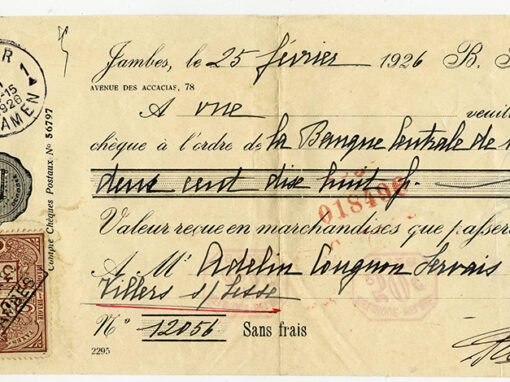 Jambes, le 25 février 1926 B.
AVENUE DES ACCACIAS, 78
A vue veuil
chèque à l'ordre de la Banque Centrale de
deux cent dix huit f
018496
Valeur reçue en marchandises que passer
A Mr Adelin Cougnon Servais
Villers s/ Lesse
No 12056 Sans frais
2295
Compte Chèques Postaux No 56797
1926